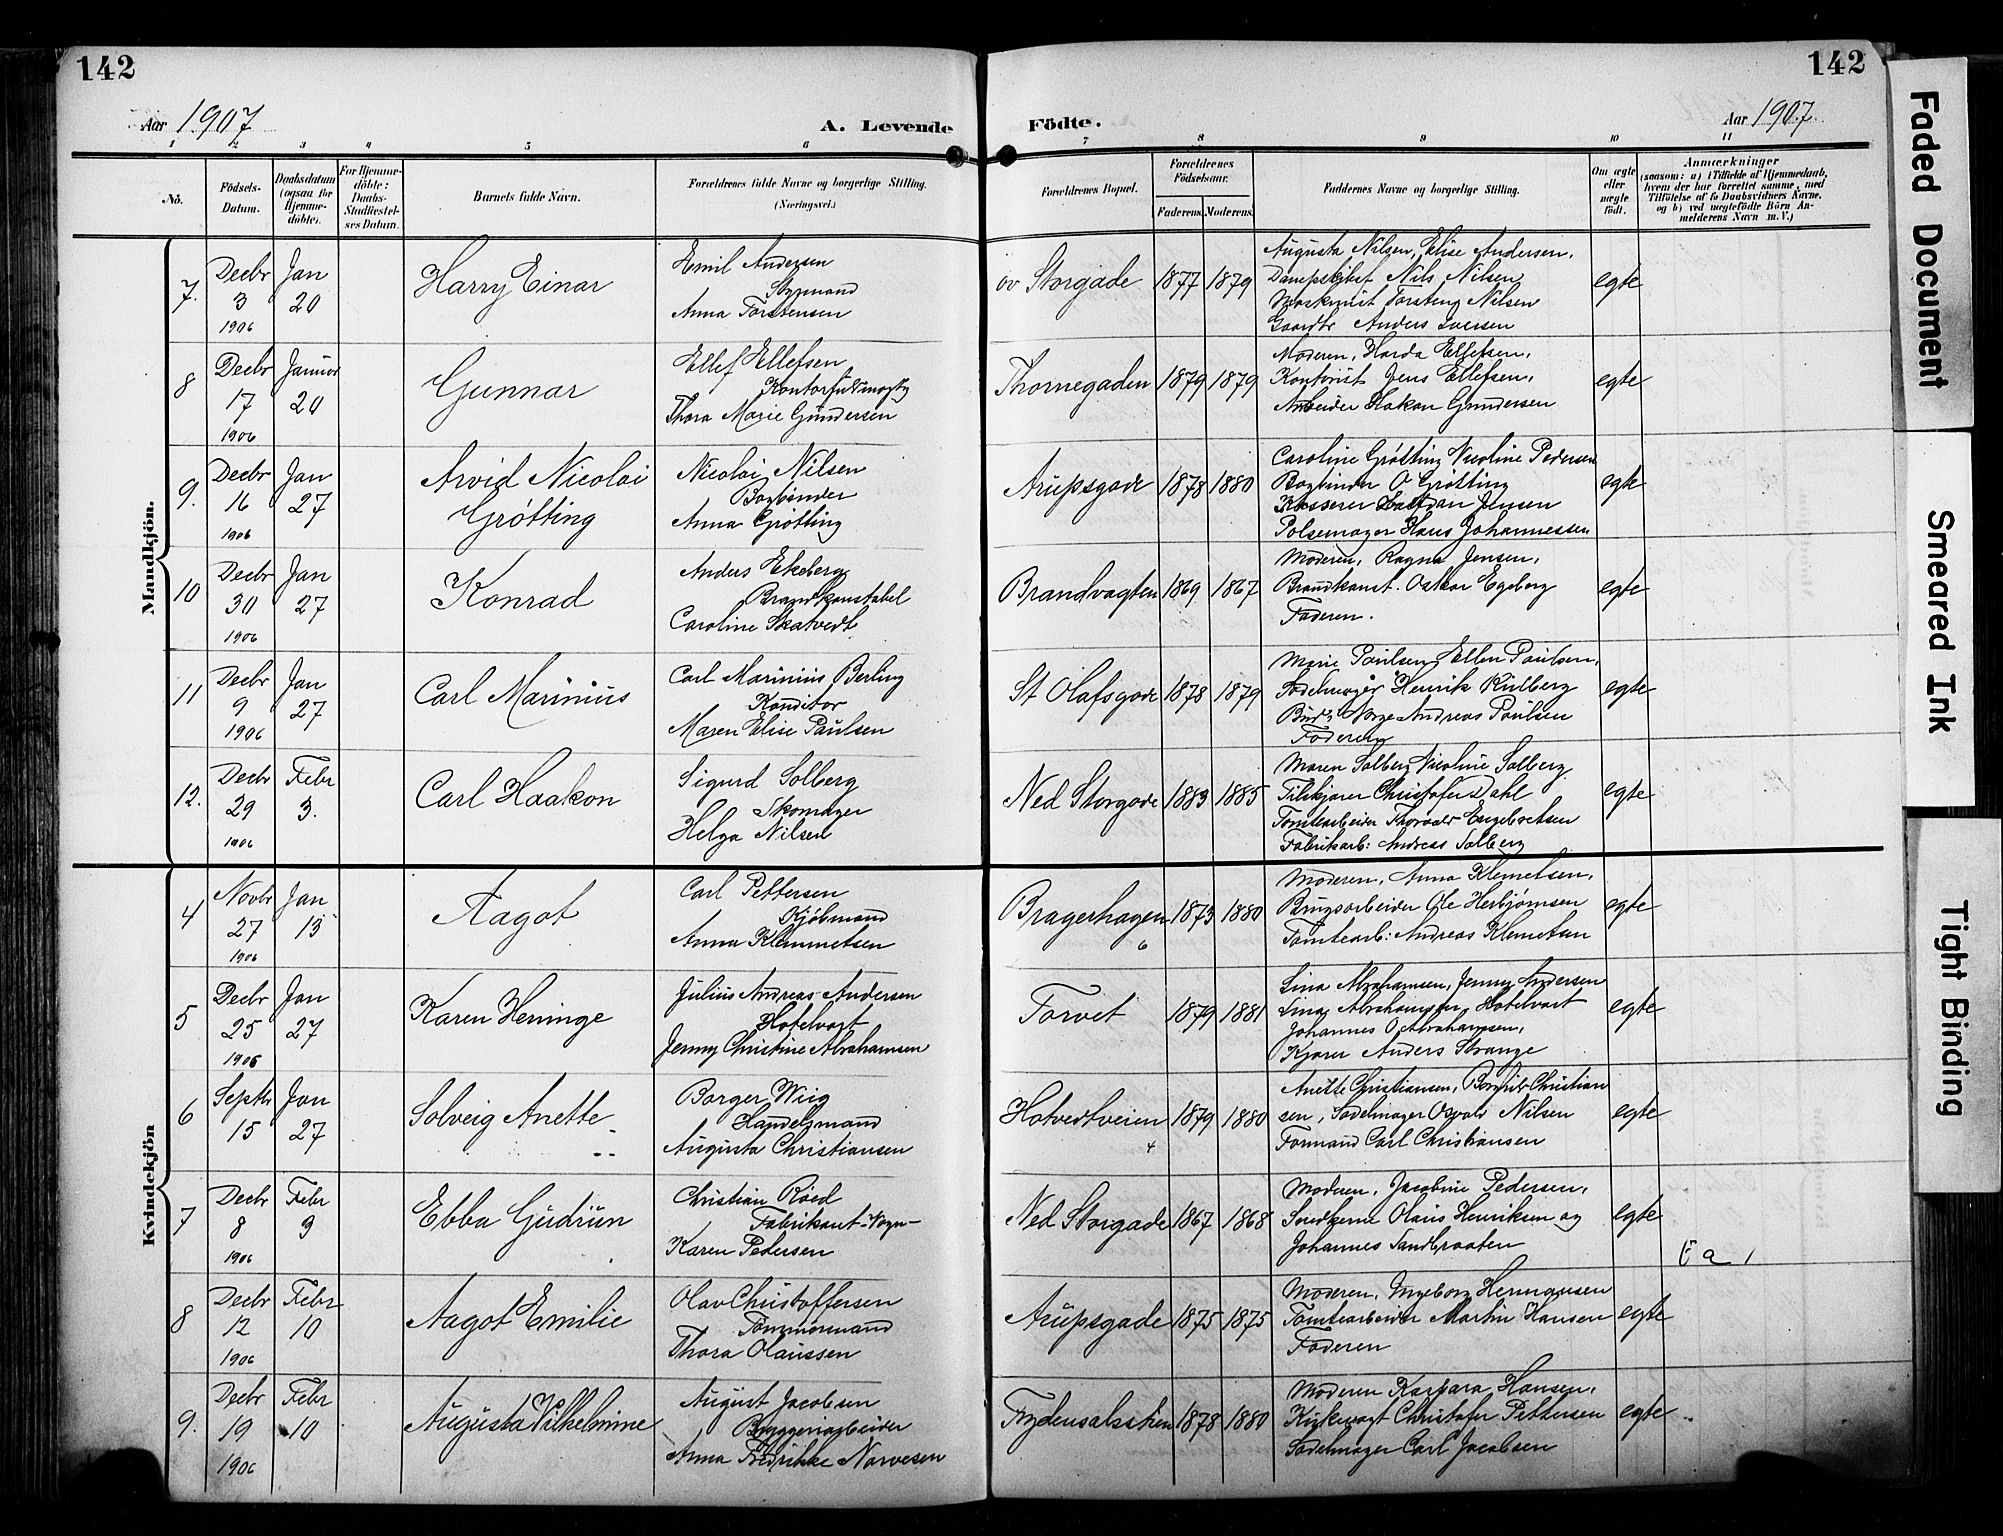 142
142
Aar 1907
A. Levende
Födte.
Aar 1907.
1 2 3 4 5 6 7 8 9 10 11
No.
Födsels-
Datum.
Daabsdatum
(ogsaa for
Hjemme-
döbte).
For Hjemme-
döbte:
Daabs-
Stadfæstel-
ses Datum.
Barnets fulde Navn.
Forældrenes fulde Navne og borgerlige Stilling.
(Næringsvei.)
Forældrenes Bopæl.
Forældrenes
Födselsaar.
Faderens. Moderens.
Faddernes Navne og borgerlige Stilling.
Om ægte
eller
uægte
födt.
Anmærkninger
(saasom: a) i Tilfælde af Hjemmedaab,
hvem der har forrettet samme, med
Tilföielse af to Daabsvidners Navne,
og b) ved uægtefödte Börn An-
melderens Navn m. V.)
Mandkjön.
7. Decbr 3 1906 Jan 20 Harry Einar
Emil Andersen
Styrmand
Anna Torstensen
öv Storgade 1877 1879
Augusta Nilsen, Elise Andersen,
Nils Nilsen
Torsten Nilsen
Gaardbr Anders Iversen
egte
8 Decbr 17 1906 Januar 20 Gunnar
Ellef Ellefsen
Thora Marie Gundersen
Thornegaden 1879 1879
Moderen, Harda Ellefsen,
Kontorist Jens Ellefsen,
Arbeider Hakon Gundersen
egte
9. Decbr 16 1906 Jan 27 Arvid Nicolai
Grötting
Nicolai Nilsen
Bogbinder
Anna Grötting
Arupsgade 1878 1880
Caroline Grötting Nicoline Pedersen
Bogbinder O Grötting
Kasserer Halfdan Jensen
Polsemager Hans Johannessen
egte
10 Decbr 30 1906 Jan 27 Konrad
Anders Ekeberg
Brandkonstabel
Caroline Skatvedt
Brandvagten 1869 1867
Moderen, Ragna Jensen,
Brandkonst. Oskar Egeberg
Faderen.
egte
11 Decbr 9 1906 Jan 27 Carl Marinius
Carl Marinius Berling
Konditor
Maren Elise Paulsen
St Olafsgade 1878 1879
Marie Paulsen, Ellen Paulsen,
Sadelmager Henrik Kulberg
Andreas Paulsen
Faderen
egte
12. Decbr 29 1906 Febr 3. Carl Haakon
Sigurd Solberg
Skomager
Helga Nilsen
Ned Storgade 1883 1885
Maren Solberg Nicoline Solberg
Christofer Dahl
Tomtearbeider Thorvald Engebretsen
Fabrikarb: Andreas Solberg
egte
Kvindekjön
4 Novbr 27 1906 Jan 13 Aagot
Carl Pettersen
Kjöbmand
Anna Klemmetsen
Bragerhagen 6 1873 1880
Moderen, Anna Klemetsen,
Brugsarbeider Ole Herbjörnsen
Tomtearb: Andreas Klemetsen
egte
5 Decbr 25 1906 Jan 27 Karen Heninge
Julius Andreas Andersen
Hotelvært
Jenny Christine Abrahamsen
Torvet 1879 1881
Lina Abrahamsen, Jenny Andersen
Lina Abrahamsen, Hotelvært
Johannes O Abrahamsen,
Kjører Anders Strange
egte
6 Septbr 15 Jan 27 Solveig Anette
Borger Wiig
Handelsmand
Augusta Christiansen
Hotvedtveien 4 1879 1880
Anette Christiansen, Borghild Christian
sen, Sadelmager Osvald Nilsen
Formand Carl Christiansen
egte
7 Decbr 8 1906 Febr 9 Ebba Gudrun
Christian Röed
Fabrikant
Karen Pedersen
Ned Storgade 1867 1868
Moderen, Jacobine Pedersen,
Snedkerne Olaus Henriksen og
Johannes Sandbraaten
egte
8 Decbr 12 1906 Febr 10 Aagot Emilie
Olav Christoffersen
Tömmermand
Thora Olaussen
Arupsgade 1875 1875
Moderen, Ingeborg Hermansen
Tomtearbeider Martin Hansen
Faderen
egte
9. Decbr 19 1906 Febr 10 Augusta Vilhelmine
August Jacobsen
Bryggeriarbeider
Anna Fredrikke Narvesen
1878 1880
Moderen Karpara Hansen,
Kirkevagt Christofer Pettersen
Sadelmager Carl Jacobsen
egte
Faded Document
Smeared Ink
Tight Binding